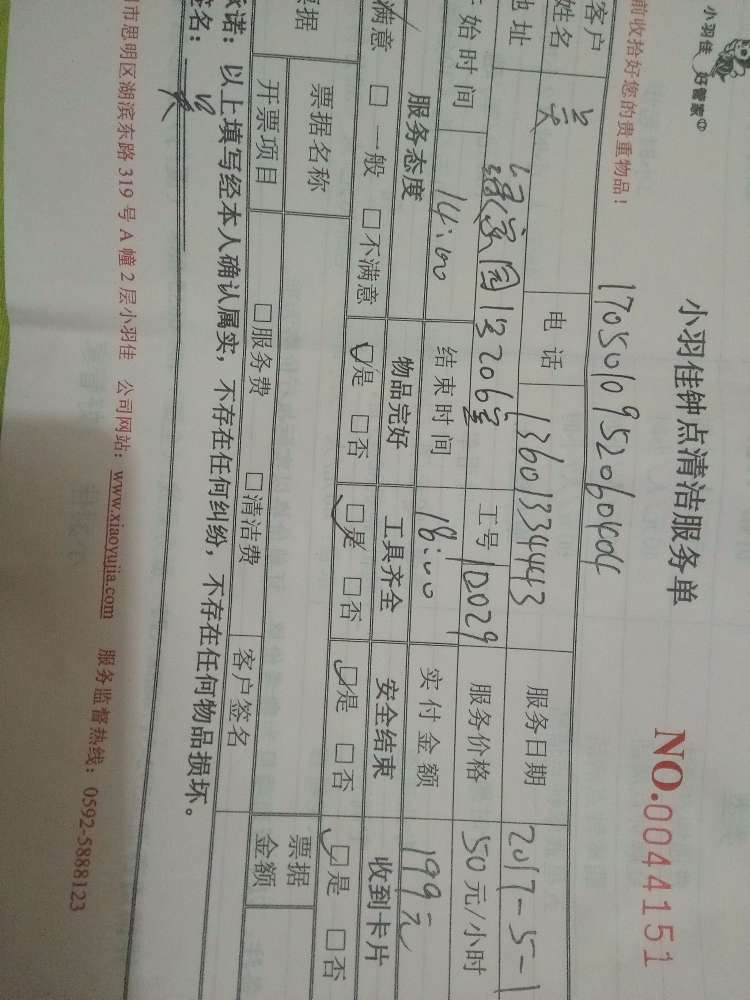 小羽佳 好管家
小羽佳钟点清洁服务单
NO.0044151
前收拾好您的贵重物品！
1705010952060404
客户
姓名 电话 13601334443 服务日期 2017-5-1
地址 1号206室 工号 10029 服务价格 50元/小时
始时间 14:00 结束时间 18:00 实付金额 199元
服务态度 物品完好 工具齐全 安全结束 收到卡片
满意 □一般 □不满意 □是 □否 □是 □否 □是 □否 □是 □否
票据 票据名称 票据
开票项目 □服务费 □清洁费 客户签名 金额
承诺：以上填写经本人确认属实，不存在任何纠纷，不存在任何物品损坏。
签名：
市思明区湖滨东路319号A幢2层小羽佳 公司网站：www.xiaoyujia.com 服务监督热线：0592-5888123